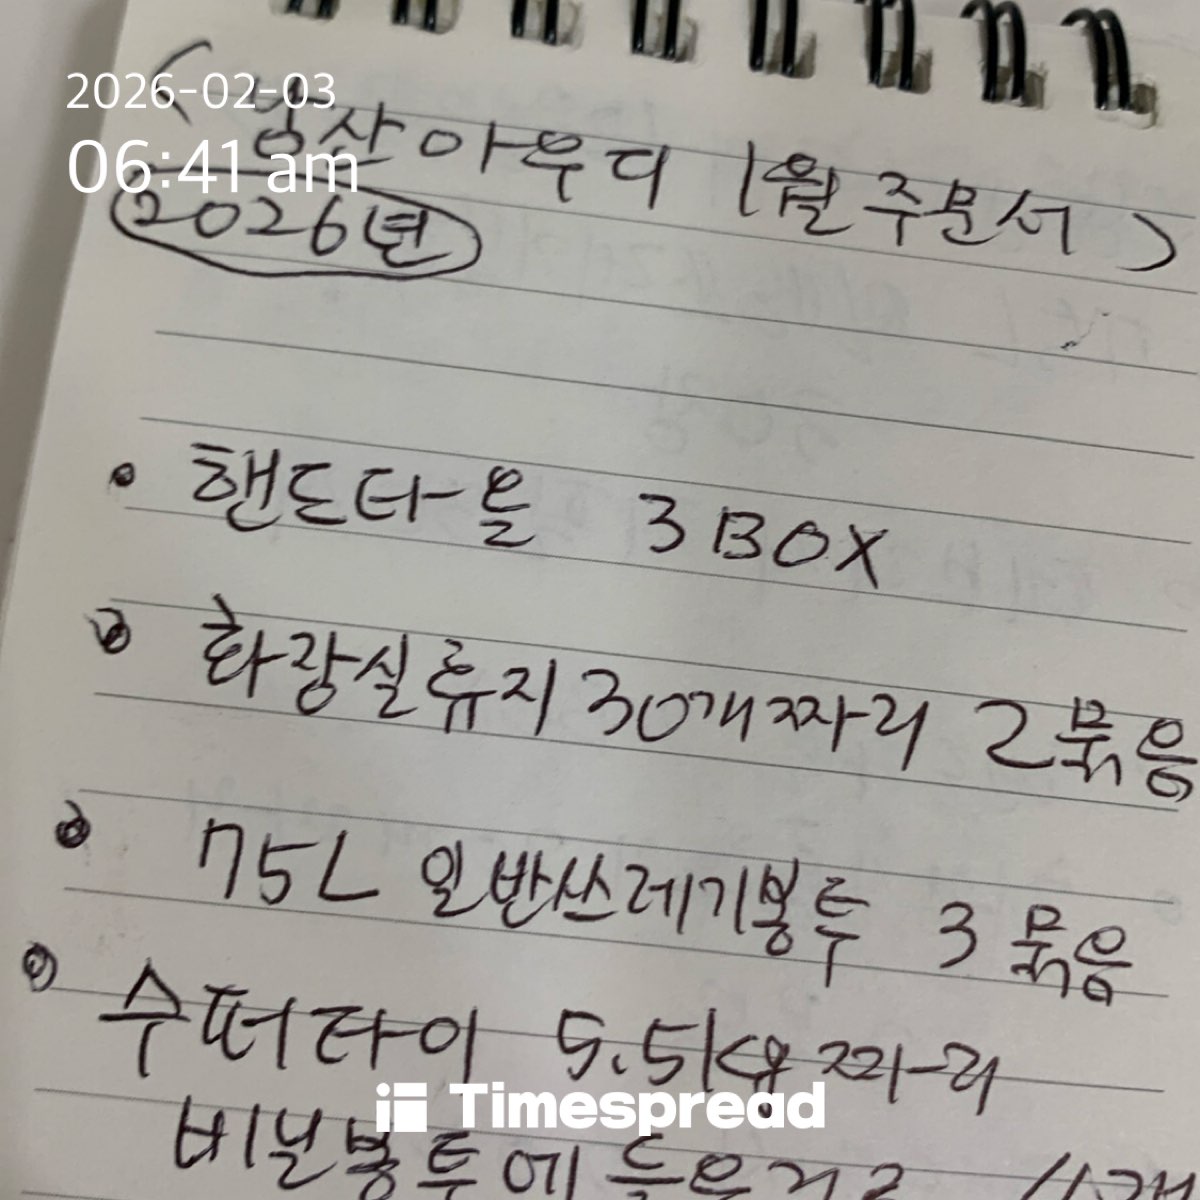 2026-02-03
06:41 am
아우디 1월 주문서 )
2026년
• 핸드타올 3 BOX
• 화장실휴지 30개짜리 2묶음
• 75L 일반쓰레기봉투 3 묶음
• 수퍼타이 5.5kg 짜리
비닐봉투에 들은거로
Timespread